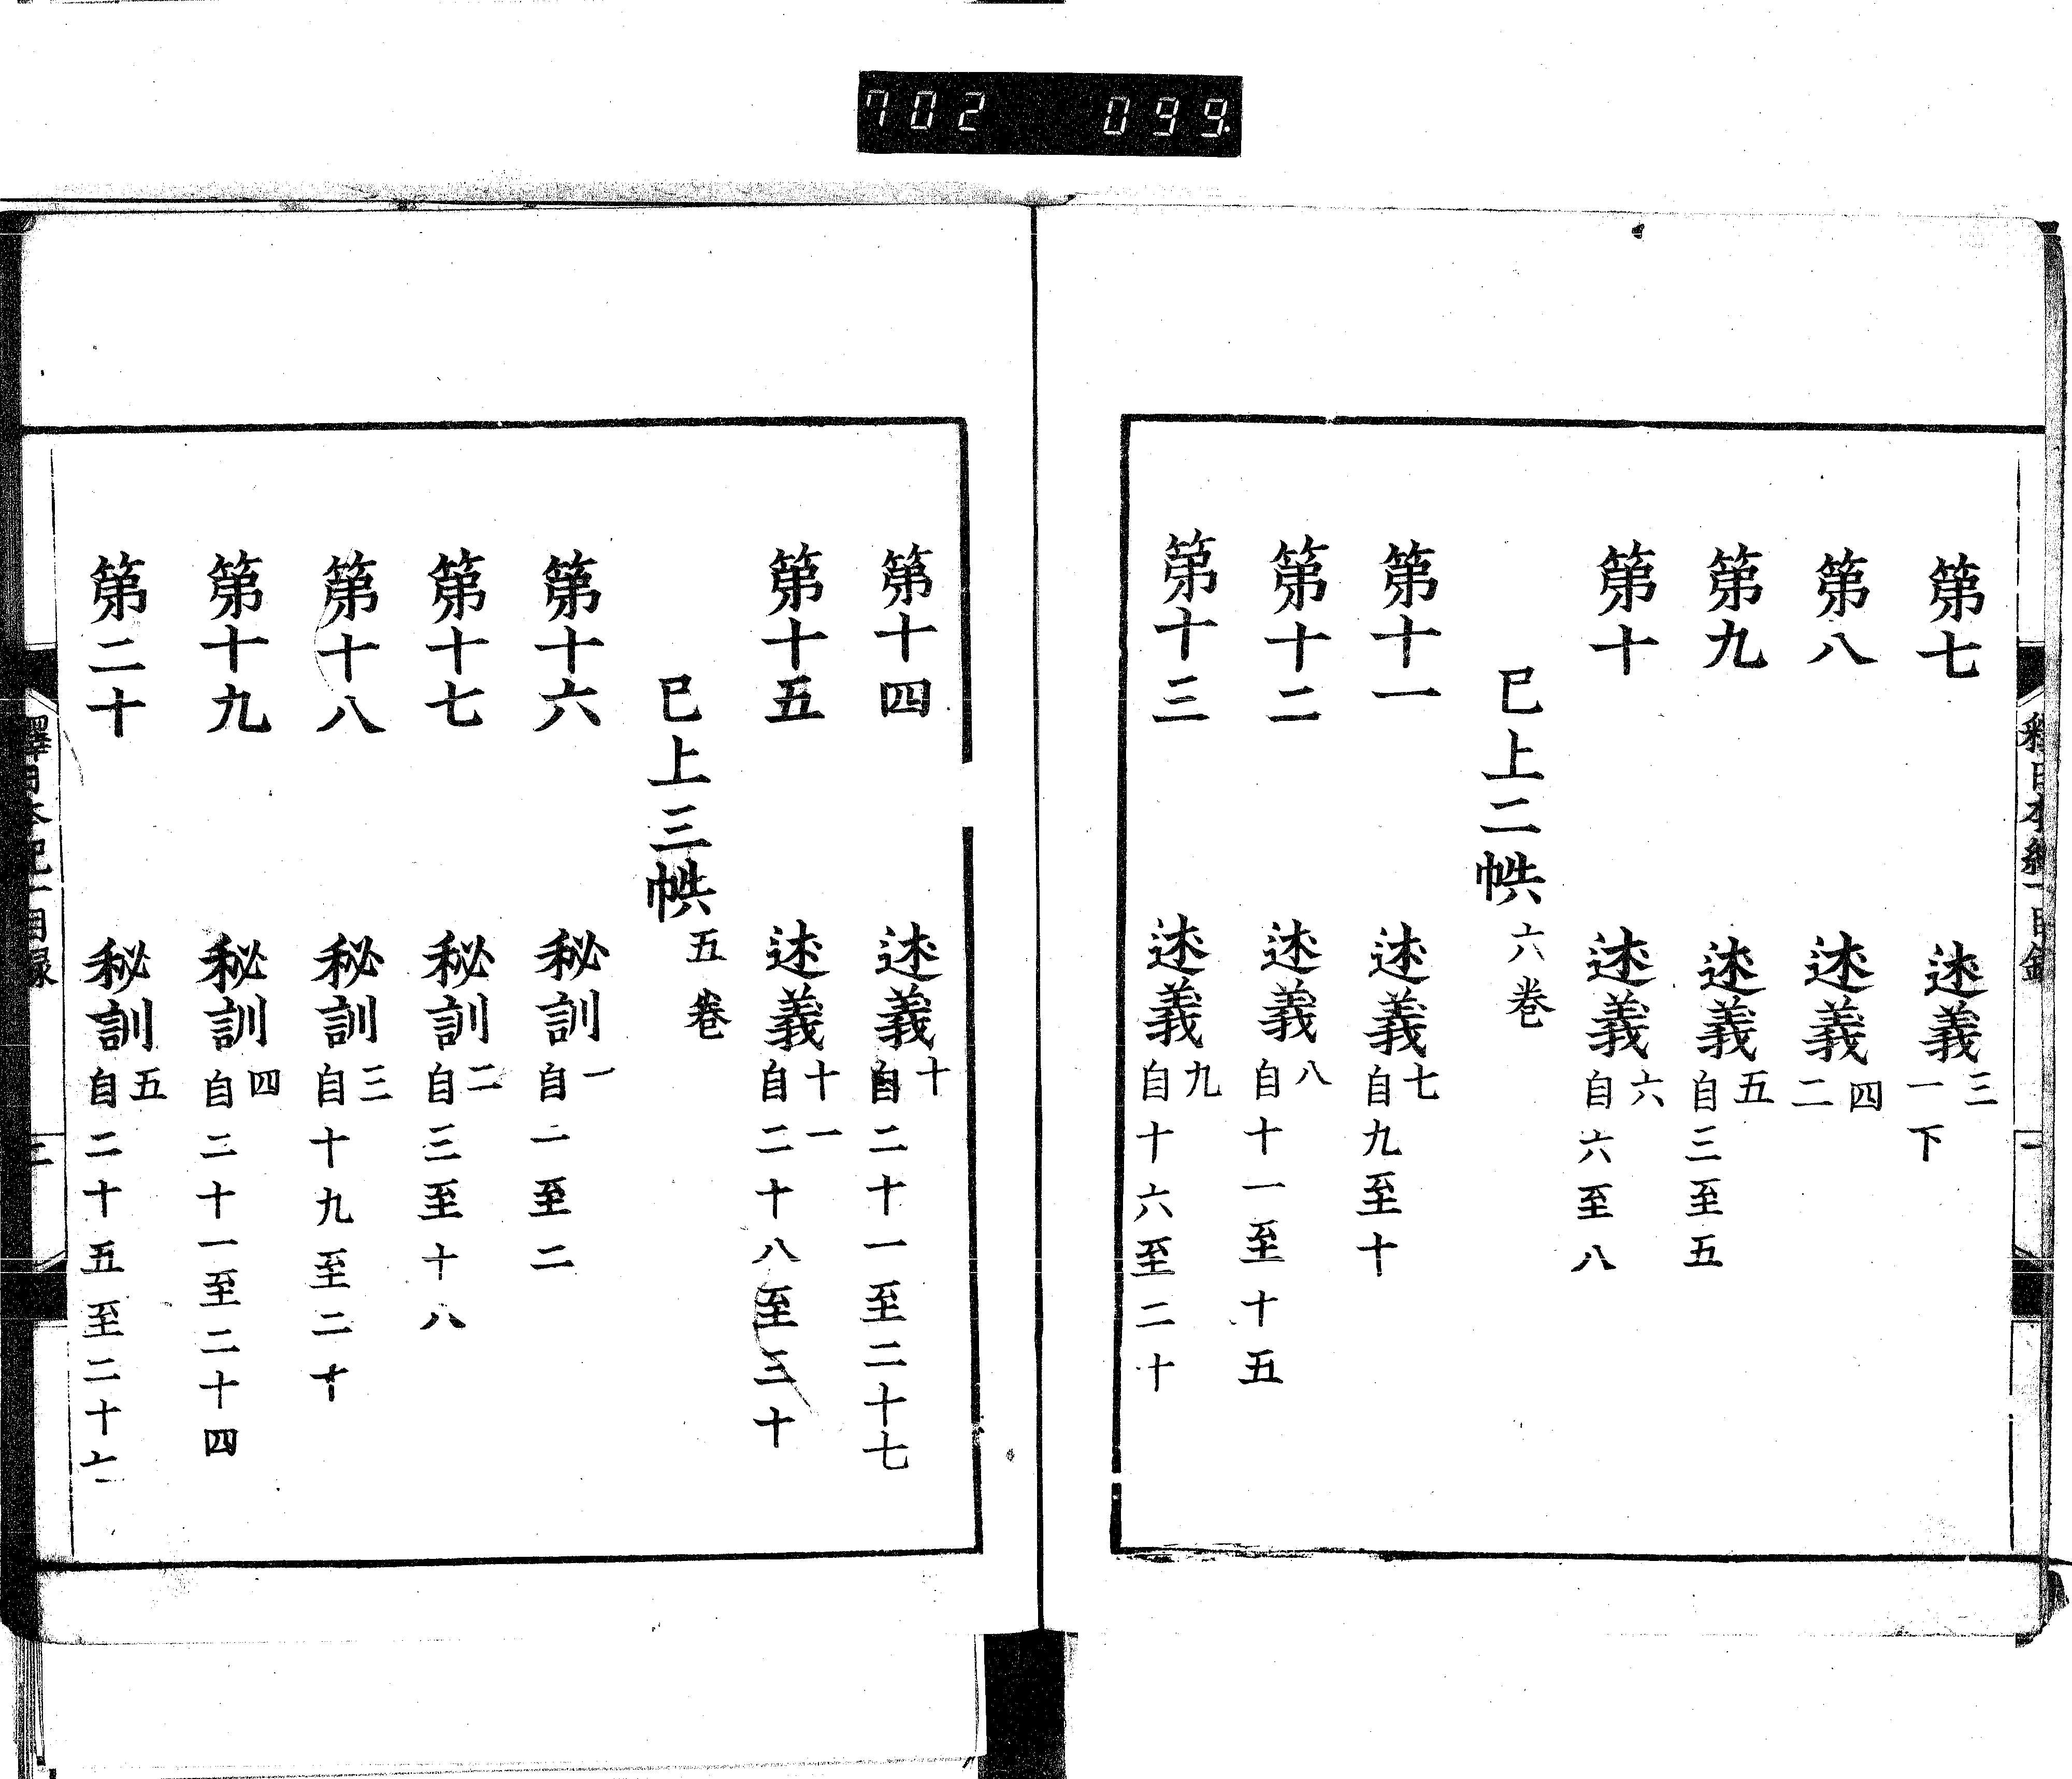 702 099
第七 述義三一下
第八 述義四二
第九 述義五自三至五
第十 述義六自六至八
已上二帙六巻
第十一 述義七自九至十
第十二 述義八自十一至十五
第十三 述義九自十六至二十
第十四 述義十自二十一至二十七
第十五 述義十一自二十八至三十
已上三帙五巻
第十六 秘訓一自一至二
第十七 秘訓二自三至十八
第十八 秘訓三自十九至二十
第十九 秘訓四自二十一至二十四
第二十 秘訓五自二十五至二十七
釋日本紀一目録 二